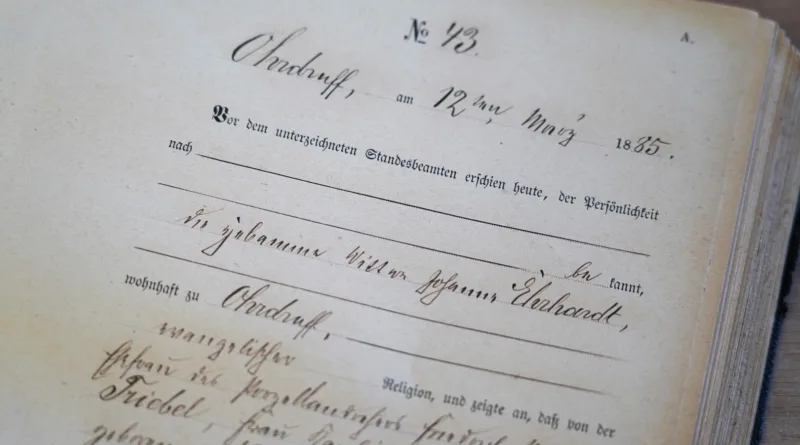 № 43.
A.
Ohrdruff, am 12ten März 1885.
Vor dem unterzeichneten Standesbeamten erschien heute, der Persönlichkeit
nach
be kannt,
die Hebamme Wittwe Johanne Ehrhardt,
wohnhaft zu Ohrdruff,
evangelischer Religion, und zeigte an, daß von der
Ehefrau des Porzellandrehers Friedrich
Triebel, Frau
geboren